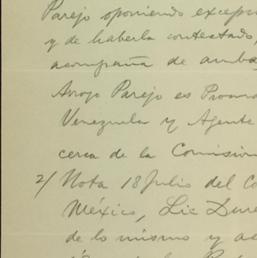 Parejo oponiendo excep
y de haberla contestado,
acompaña de amba
Arojo Parejo es Promo
Venezuela y Agente
cerca de la Comision
2/ Nota 18 Julio del Co
México, Lic Due
de lo mismo y a